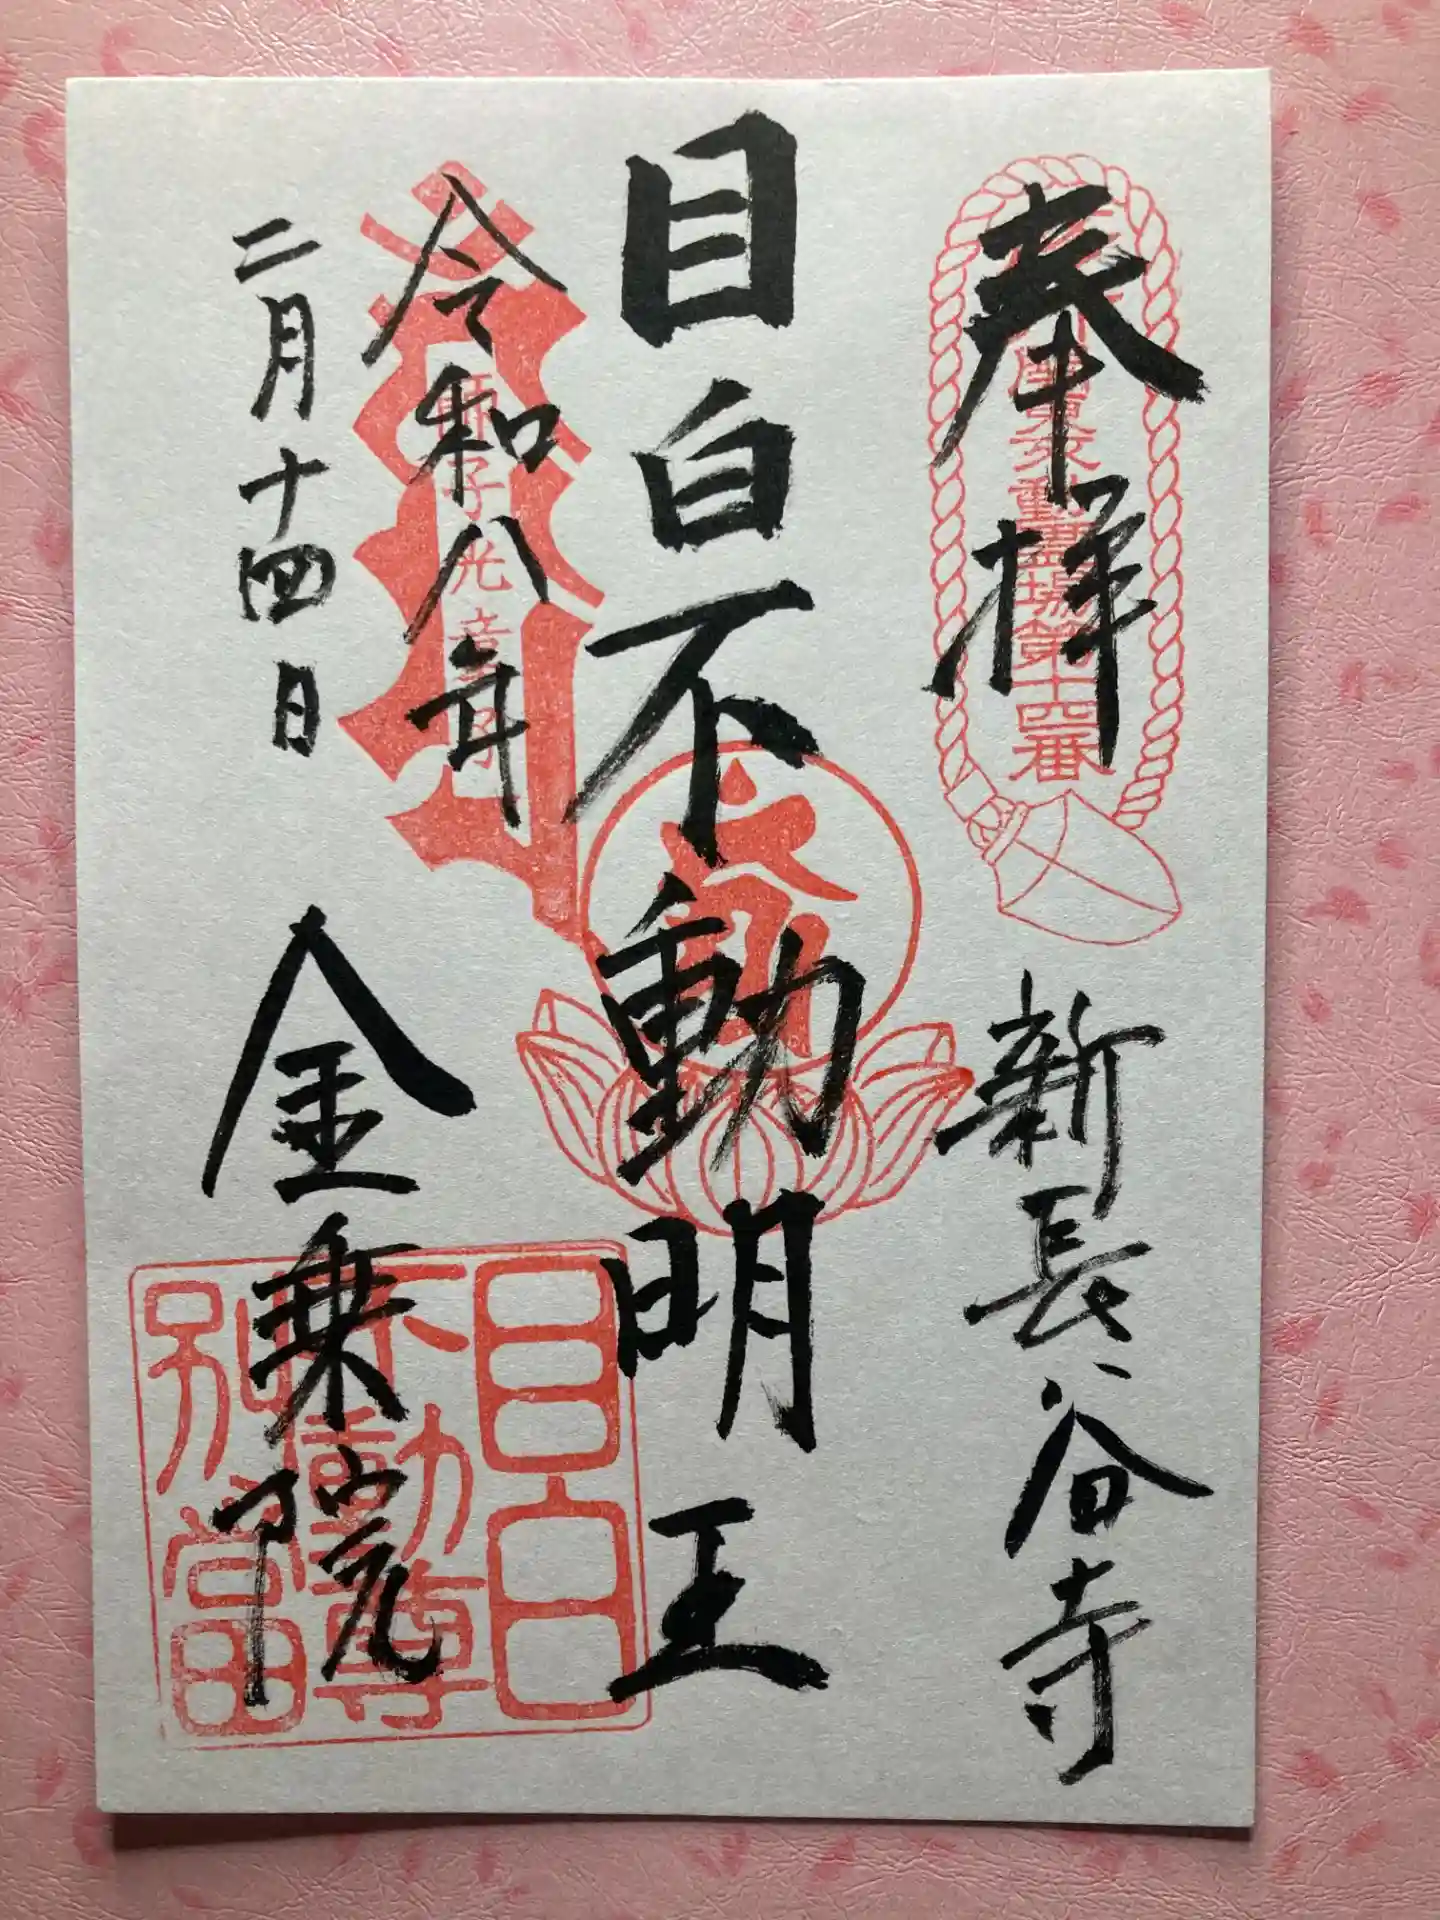 奉拝
関東
不動霊場第十四番
新長谷寺
目白不動明王
令和八年
二月十四日
子光童
金乗院
目白
不動尊
別當